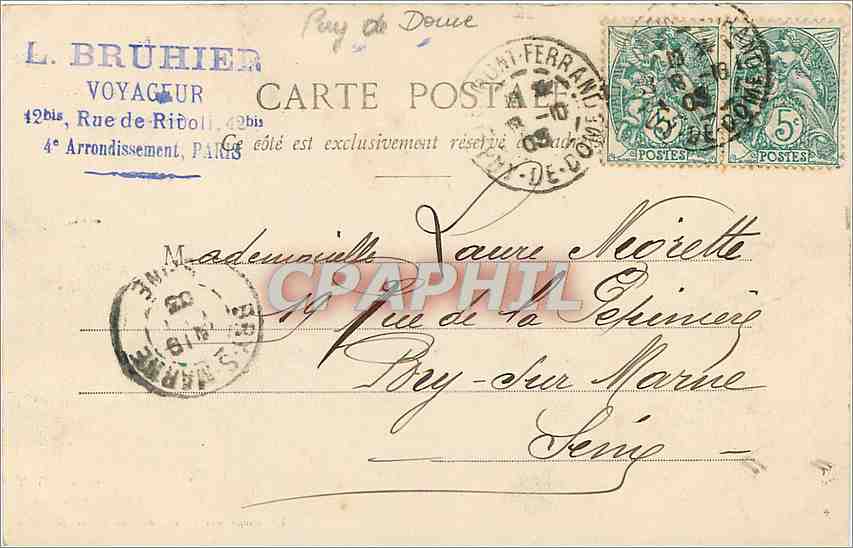 Puy de Dome
L. BRUHIER
VOYAGEUR
42bis, Rue de Rivoli, 42bis
4e Arrondissement, PARIS
CARTE POSTALE
Ce côté est exclusivement réservé à l'adresse
CLERMONT-FERRAND
18 -10
03
PUY-DE-DOME
5c
POSTES
5c
POSTES
Mademoiselle Laure Noirette
19 Rue de la Pépinière
Bry-sur Marne
Seine
BRY-S-MARNE
SEINE
03
CPAPHIL